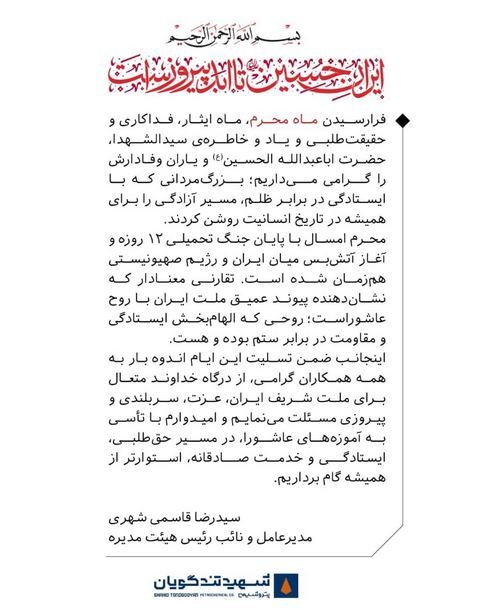 بسم الله الرحمن الرحیم
ایران حسین تا ابد پیروز است
فرارسیدن ماه محرم، ماه ایثار، فداکاری و
حقیقت‌طلبی و یاد و خاطره‌ی سیدالشهدا،
حضرت اباعبدالله الحسین(ع) و یاران وفادارش
را گرامی می‌داریم؛ بزرگ‌مردانی که با
ایستادگی در برابر ظلم، مسیر آزادگی را برای
همیشه در تاریخ انسانیت روشن کردند.
محرم امسال با پایان جنگ تحمیلی ۱۲ روزه و
آغاز آتش‌بس میان ایران و رژیم صهیونیستی
هم‌زمان شده است. تقارنی معنادار که
نشان‌دهنده پیوند عمیق ملت ایران با روح
عاشوراست؛ روحی که الهام‌بخش ایستادگی
و مقاومت در برابر ستم بوده و هست.
اینجانب ضمن تسلیت این ایام اندوه بار به
همه همکاران گرامی، از درگاه خداوند متعال
برای ملت شریف ایران، عزت، سربلندی و
پیروزی مسئلت می‌نمایم و امیدوارم با تأسی
به آموزه‌های عاشورا، در مسیر حق‌طلبی،
ایستادگی و خدمت صادقانه، استوارتر از
همیشه گام برداریم.
سیدرضا قاسمی شهری
مدیرعامل و نائب رئیس هیئت مدیره
شهید تندگویان
پتروشیمی
SHAHID TONDGOOYAN PETROCHEMICAL CO.